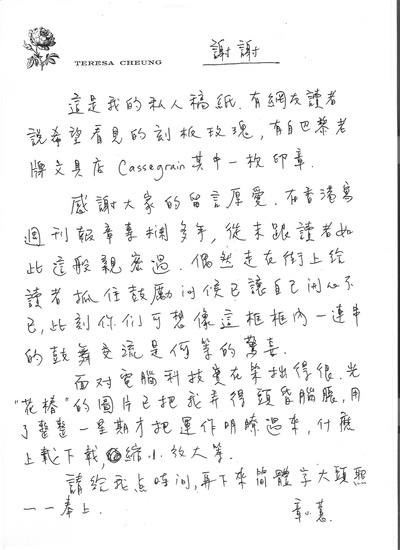 TERESA CHEUNG
謝謝
這是我的私人稿紙.有網友讀者
說希望看見的刻板玫瑰,有自巴黎老
牌文具店 Cassegrain其中一枚印章.
感謝大家的留言厚愛.在香港寫
週刊報章專欄多年,從未跟讀者如
此這般親密過.偶然走在街上給
讀者抓住鼓勵问候已讓自己開心不
已,此刻你们可想像這框框內一連串
的鼓舞交流是何等的驚喜.
面对電腦科技實在笨拙得很.光
"花樁"的圖片已把我弄得頭昏腦脹,用
了整整一星期才把運作明瞭過來,什麼
上載下載,縮小放大等.
請給我点時间,再下來简體字大頭照
一一奉上.
章小蕙.